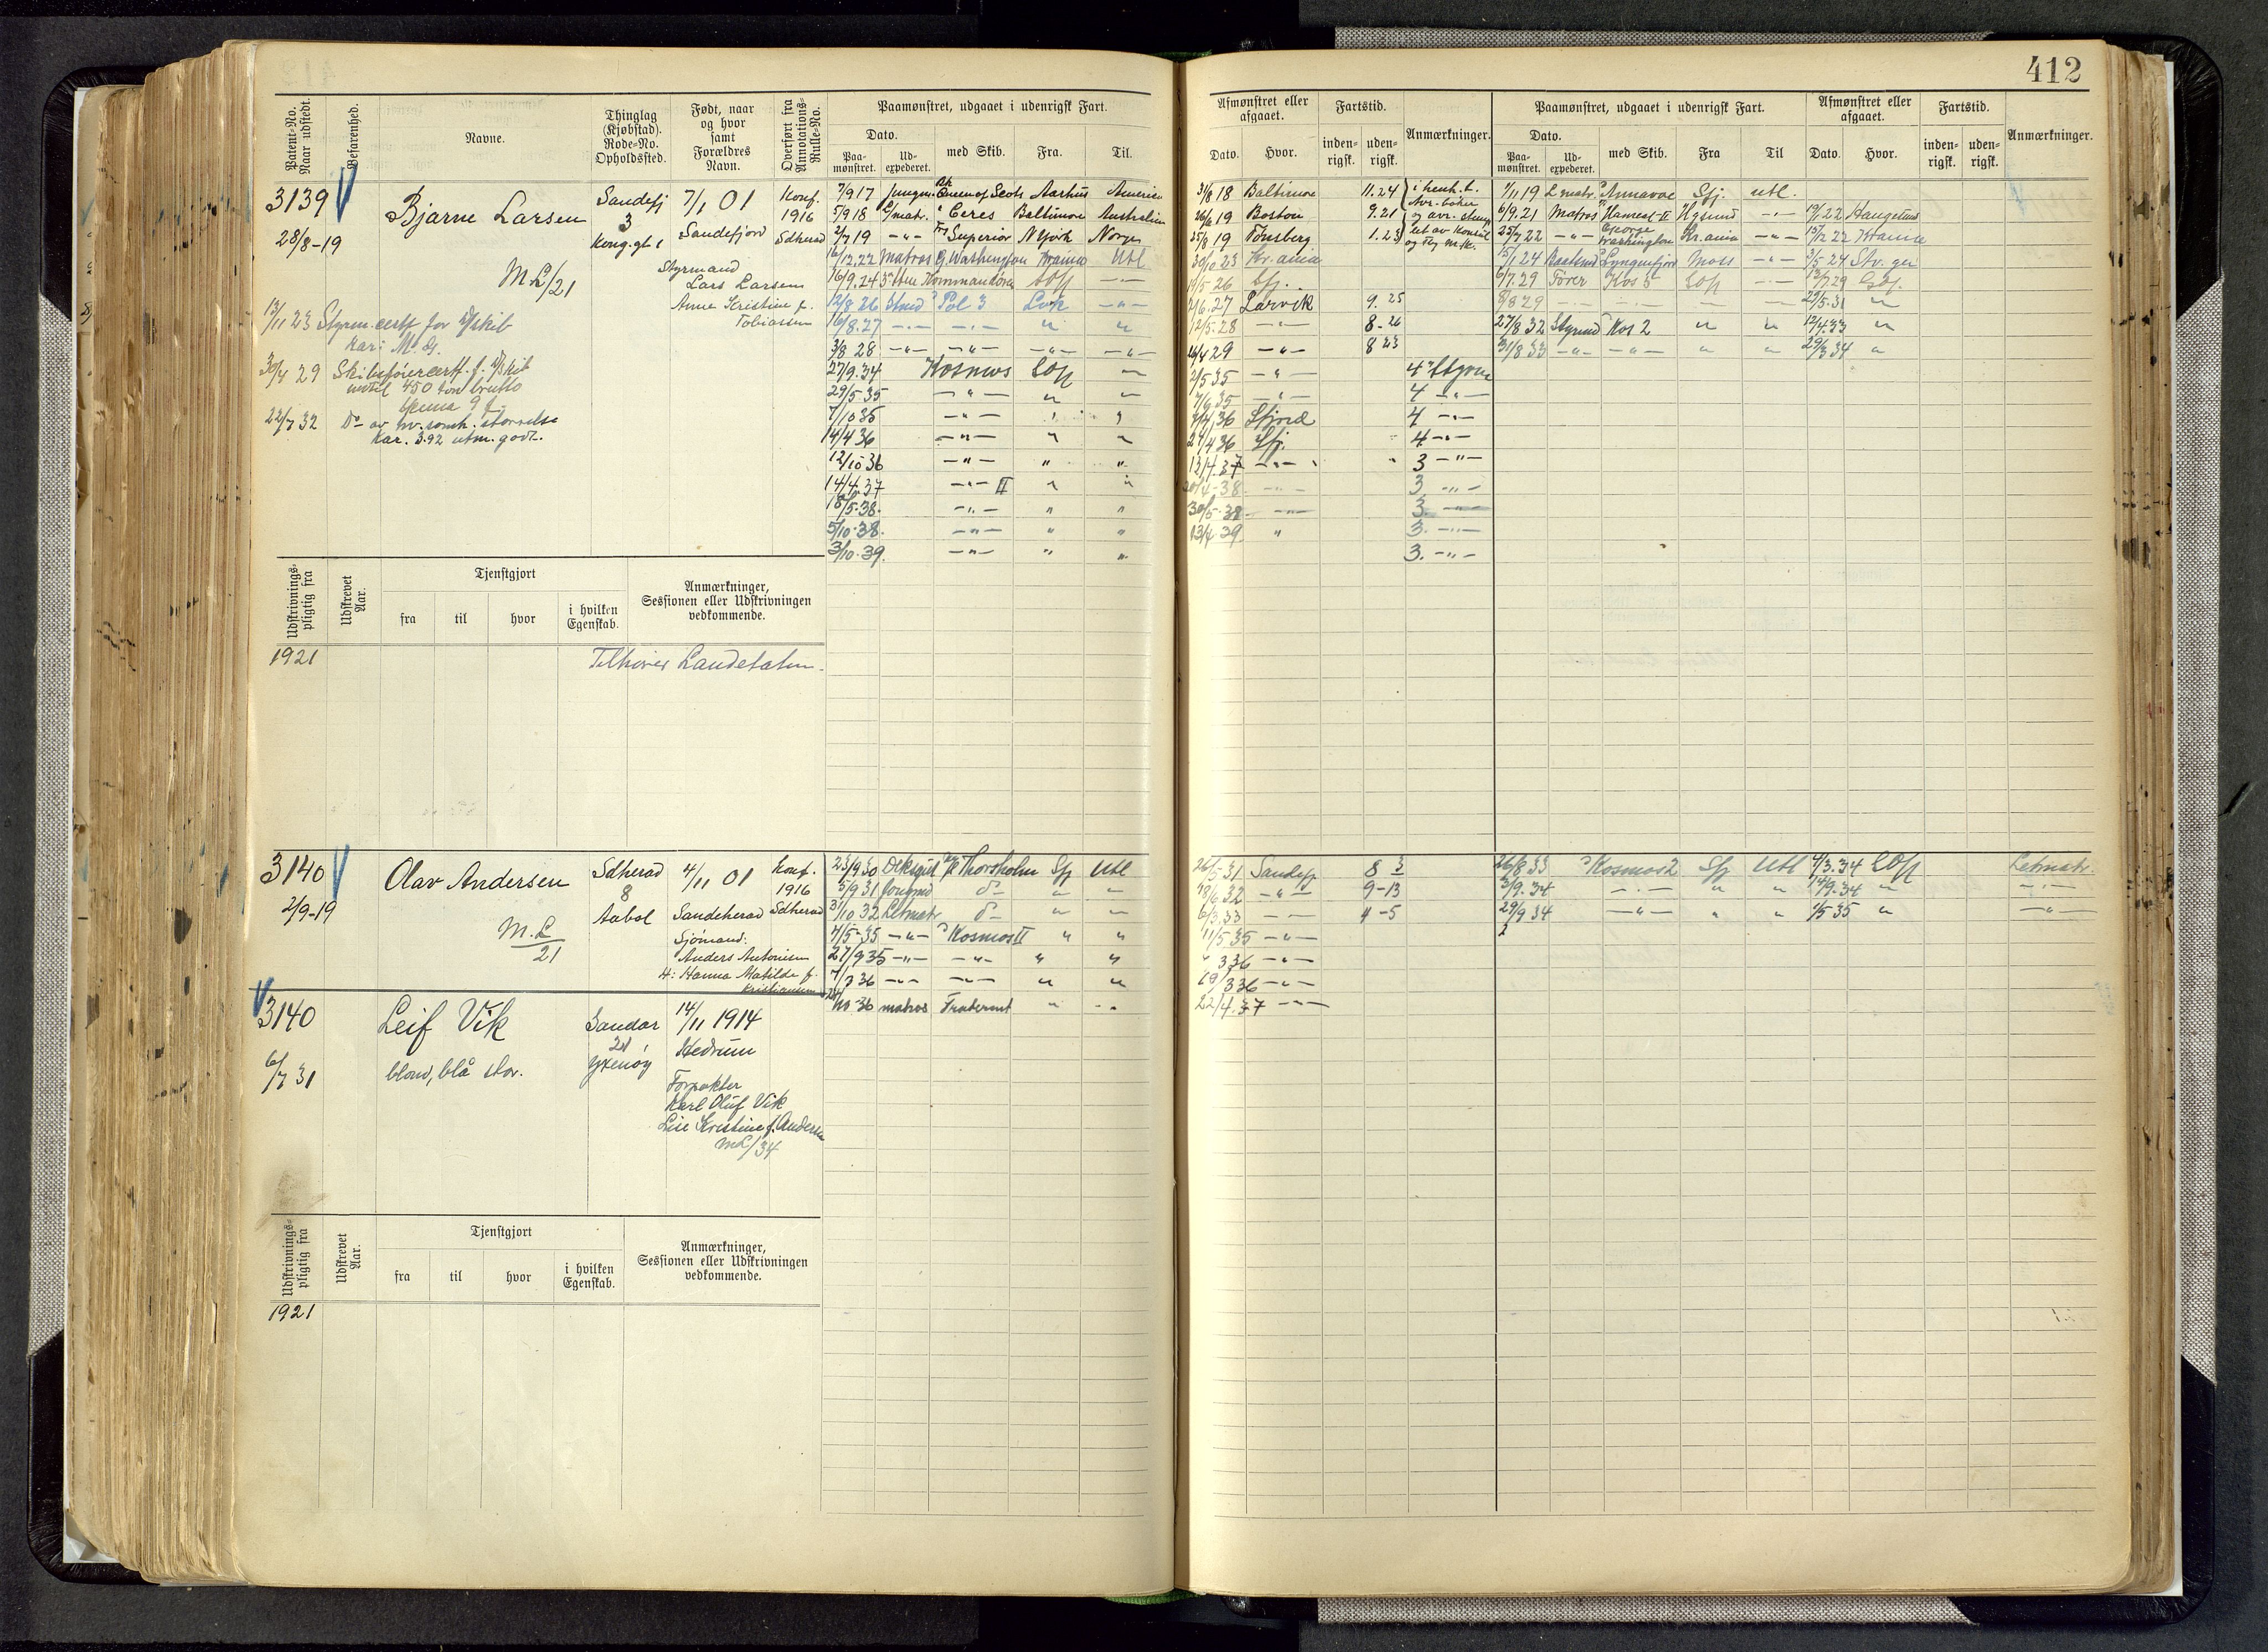 412
Patent-No. Naar udstedt.
Befarenhed.
Navne.
Thinglag (Kjøbstad). Rode-No. Opholdssted.
Født, naar og hvor samt Forældres Navn.
Overført fra Annotations-Rulle-No.
Paamønstret, udgaaet i udenrigsk Fart.
Dato.
Paa-mønstret.
Ud-expederet.
med Skib.
Fra.
Til.
Afmønstret eller afgaaet.
Dato.
Hvor.
Fartstid.
inden-rigsk.
uden-rigsk.
Anmærkninger.
Paamønstret, udgaaet i udenrigsk Fart.
Dato.
Paa-mønstret.
Ud-expederet.
med Skib.
Fra
Til
Afmønstret eller afgaaet.
Dato.
Hvor.
Fartstid.
inden-rigsk.
uden-rigsk.
Anmærkninger.
3139
28/8-19
Bjarne Larsen
M.L/21
Sandefj
3
Kong.gt 1
7/1 01
Sandefjord
Styrmand
Lars Larsen
Anne Kristine f.
Tobiassen
Konf.
1916
Sdherad
13/11 23 Styrm.certf for d/skib
Kar: M. G.
30/4 29 Skibsførercertf. f. d/skib
inntil 450 ton brutto
22/7 32 Do av hv. somh. størrelse
Kar. 3.92 utm. godt.
7/9 17 Jungm Bk Queen of Scots Aarhus Amerika
5/9 18 L/matr. " Ceres Baltimore Australien
2/7 19 -"- Superior N York Norge
16/12.22 Matros G. Washington Krania Utl
16/9.24 Kommandøren
12/8 26 Stmd Pol 3 Lvk -"-
16/8.27 -"- -"- " "
3/8 28 -"- -"- -"- -"-
27/9.34 Kosmos Sdfj -"-
29/5.35 -"- " "
7/10 35 -"- " "
14/4 36 -"- " "
12/10 36 -"- " "
14/4.37 -"- II " "
18/5.38. -"- " "
5/10.38. -"- " "
3/10.39. -"- " "
31/8 18 Baltimore 11.24
26/6 19 Boston 9.21
25/8 19 Tønsberg 1.23
i henh. t.
Avr. bøker
og avr. stemp
let av konsul
30/10 23 Kr.ania
14/5 26 Sfj.
2/6.27 Larvik 9.25
12/5.28 -"- 8-26
26/4 29 -"- 8 23
2/5 35 -"- 4 Styrm
7/6.35 -"- 4 -"-
7/4.36 Sfjord 4 -"-
24/4 36 Sfj. 4 -"-
13/4.37 -"- 3 -"-
20/4-38. -"- 3 -"-
30/5.38 -"- 3. -"-
13/4 39. " 3. -"-
3. -"-
7/11 19 L.matr. Annavoe Sfj. utl.
6/9.21 Matros Hamlet II Hgsund -"- 19/2 22 Haugesund
25/7 22 -"- George Washington Kr.ania -"- 15/12 22 Krania
15/1 24 Baatsmd Lyngenfjord Moss -"- 2/5-24 Stv.ger
6/7.29 Fører Kos 5 -"- 13/7.29
8/8 29 29/5.31 "
27/8 32 Styrmd Kos 2 " " 12/4 33 "
31/8 33 -"- -"- " " 29/3 34 "
Udskrivnings-pligtig fra
Udskrevet Aar.
Tjenstgjort
fra
til
hvor
i hvilken Egenskab.
Anmærkninger, Sessionen eller Udskrivningen vedkommende.
1921
Tilhører Landetaten.
3140
2/9-19
Olav Andersen
M.L
21
Sdherad
8
Aabol
4/11 01
Sandeherad
Sjømand:
Anders Antonsen
H: Hanna Matilde f.
Kristiansen
Konf.
1916
Sdherad
23/9 30 Dæksgut Thorsholm Sfj Utl
5/9 31 Jongmd do " "
31/10 32 Letmatr do " "
4/5-35 -"- Kosmos II " "
27/9 35 -"- -"- " "
7/3 36 -"- -"- " "
10 36 matros " "
26/5.31 Sandefj 8 3
18/6.32 -"- 9-13
6/3.33 -"- 4-5
11/5 35 -"-
3 36 -"-
19/3 36 -"-
22/4.37 -"-
26/8 33 Kosmos 2 Sfj Utl 4/3.34 Letmatr.
3/9.34 -"- " " 14/9.34 " -"-
29/9 34 -"- " " 1/5 35 " -"-
3140
6/7 31
Leif Vik
blond, blå stor.
Sandar
21
Yxenøy
14/11 1914
Hedrum
Forpakter
Karl Oluf Vik
Lise Kristine f. Andersen
ML/34
Udskrivnings-pligtig fra
Udskrevet Aar.
Tjenstgjort
fra
til
hvor
i hvilken Egenskab.
Anmærkninger, Sessionen eller Udskrivningen vedkommende.
1921